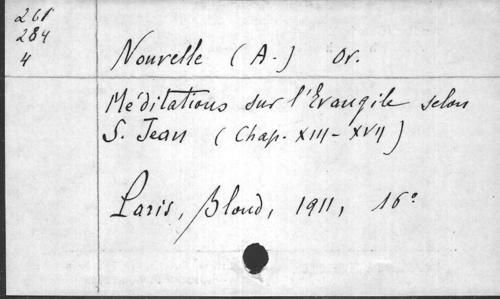 268
284
4
Nouvelle (A.) Or.
Méditations sur l'Evangile selon
S. Jean (Chap. XIII-XVII)
Paris, Bloud, 1911, 16°